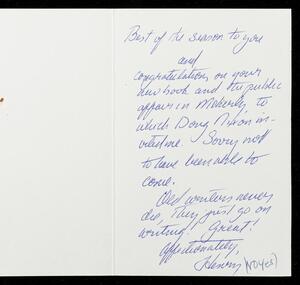 Best of the season to you
and
congratulations on your
new book and the public
affair in Moberly, to
which Doug Nixon in-
vited me. Sorry not
to have been able to
come.
Old writers never
die, they just go on
writing! Great!
Affectionately,
Henry (NOYES)